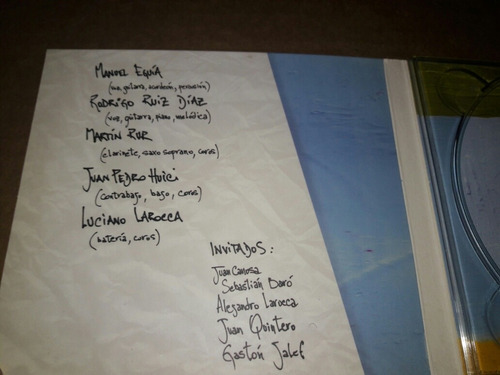 MANUEL EGUÍA
(voz, guitarra, acordeón, percusión)
RODRIGO RUIZ DÍAZ
(voz, guitarra, piano, melódica)
MARTÍN RUR
(clarinete, saxo soprano, coros)
JUAN PEDRO HUICI
(contrabajo, bajo, coros)
LUCIANO LAROCCA
(batería, coros)
INVITADOS:
Juan Canosa
Sebastián Baró
Alejandro Larocca
Juan Quintero
Gastón Jalef